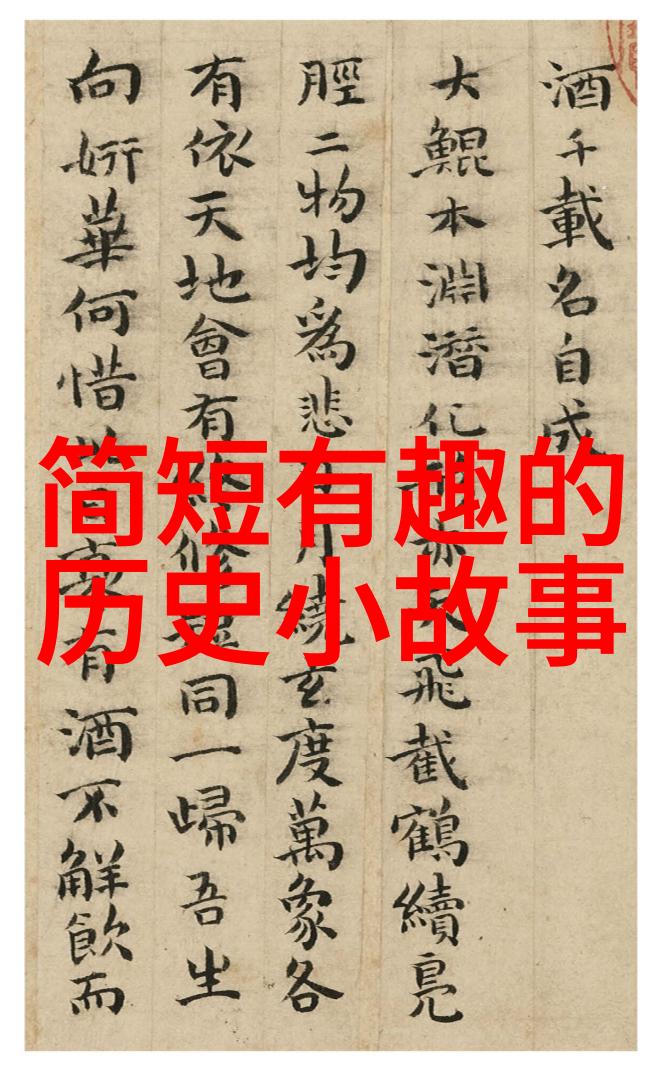 酒千載名自成
大鯤本淵潛化亦飛截鶴續鳧
脛二物均爲悲月繞玄度萬象各
有依天地會有修同一歸吾生
向妍華何惜有酒不解飲而
简短有趣的
历史小故事